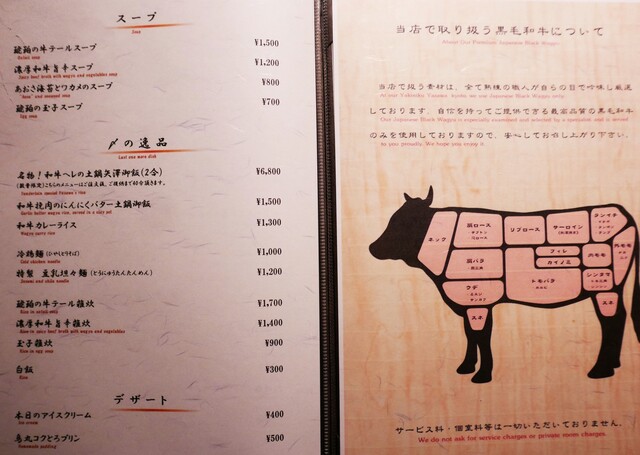 スープ
Soup
琥珀の牛テールスープ ¥1,500
濃厚和牛旨辛スープ ¥1,200
Spicy beef broth with wagyu and vegetables soup
あおさ海苔とワカメのスープ ¥800
琥珀の玉子スープ ¥700
Egg soup
〆の逸品
Last one more dish
名物!和牛ヘレの土鍋矢澤御飯(2合) ¥6,800
和牛挽肉のにんにくバター土鍋御飯 ¥1,500
和牛カレーライス ¥1,300
Wagyu curry rice
冷鶏麺(ひやしとりそば) ¥1,000
Cold chicken noodle
特製 豆乳坦々麺(とうにゅうたんたんめん) ¥1,200
琥珀の牛テール雑炊 ¥1,700
濃厚和牛旨辛雑炊 ¥1,400
Rice in spicy beef broth with wagyu and vegetables
玉子雑炊 ¥900
Rice in egg soup
白飯 ¥300
Rice
デザート
本日のアイスクリーム ¥400
Ice cream
烏丸コクとろプリン ¥500
当店で取り扱う黒毛和牛について
About Our Premium Japanese Black Wagyu
当店で扱う素材は、全て熟練の職人が自らの目で吟味し厳選
しております。自信を持ってご提供できる最高品質の黒毛和牛
Our Japanese Black Wagyu is especially examined and selected by a specialist and is served
のみを使用しておりますので、安心してお召し上がり下さい。
to you proudly. We hope you enjoy it.
ネック
肩ロース
リブロース
サーロイン
ランイチ
肩バラ
ウデ
フィレ
カイノミ
トモバラ
内モモ
外モモ
シンタマ
スネ
スネ
サービス料・個室料等は一切いただいておりません。
We do not ask for service charges or private room charges.